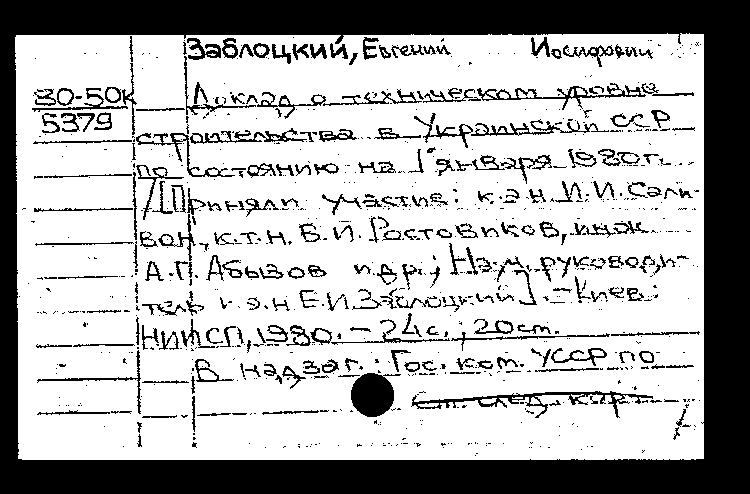 Заблоцкий, Евгений Иосифович
80-50к Доклад о техническом уровне
5379 строительства в Украинской ССР
по состоянию на 1 января 1980г.
/[Приняли участие: к.э.н. И.И. Сали-
вон, к.т.н. В.И. Ростовиков, инж.
А.Г. Абызов и др.; Науч. руководи-
тель к.э.н. Е.И. Заблоцкий]. - Киев:
НИИСП, 1980. - 24с.; 20см.
В надзаг.: Гос. ком. УССР по
См. след. кар.